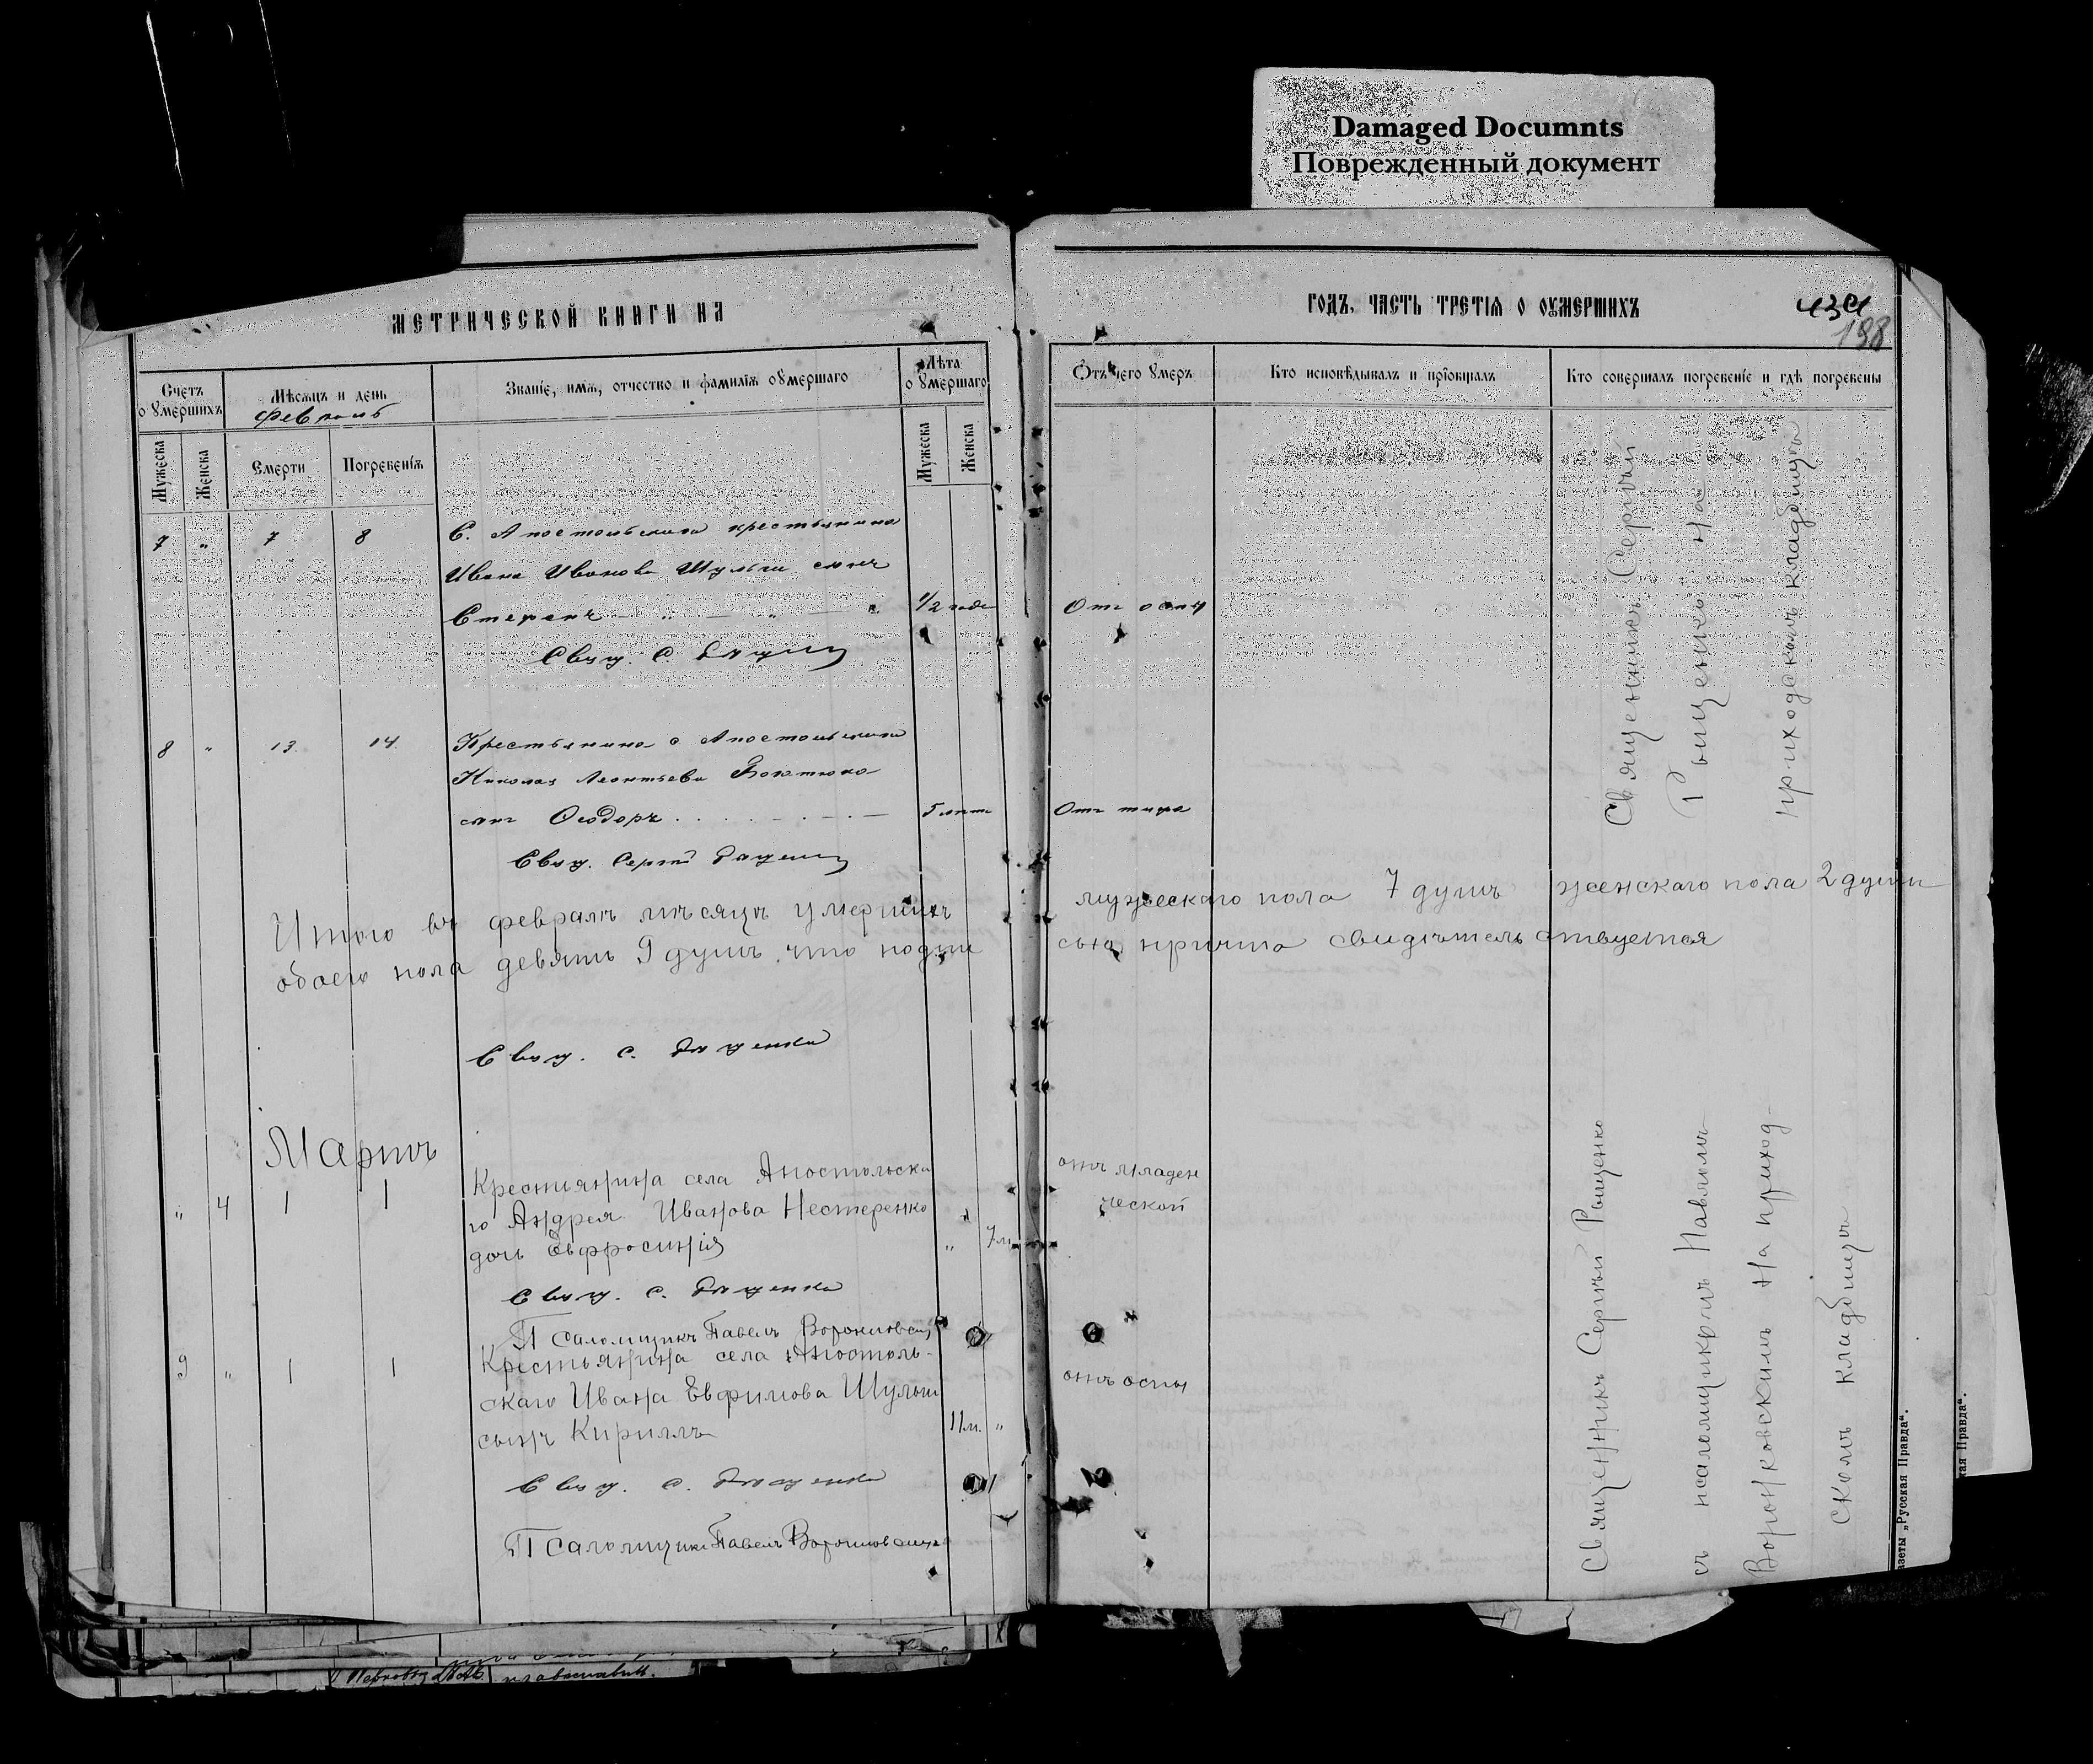 Damaged Documnts
Поврежденный документ
МЕТРИЧЕСКОЙ КНИГИ НА
Счетъ о умершихъ
Мѣсяцъ и день
февраль
Званіе, имя, отчество и фамилія умершаго
Лѣта умершаго
Мужеска
Женска
Смерти
Погребенія
Мужеска
Женска
7 " 7 8 С. Апостольскаго крестьянина
Ивана Иванова Шульги сынъ
Стефанъ " " " 1/2 года
Свящ. С.
8 " 13. 14. Крестьянина с Апостольскаго
Николая Леонтьева
сынъ Ѳеодоръ 5 лѣтъ
Свящ. Сергій
Итого въ февралѣ мѣсяцѣ умершихъ
обоего пола девять 9 душъ. что подпи
Свящ. С.
Мартъ
" 4 1 1 Крестьянина села Апостольска
го Андрея Иванова Нестеренко
дочь Евфросинія " 7м.
Свящ. С.
Псаломщикъ Павелъ
9 " 1 1 Крестьянина села Апостоль-
скаго Ивана Евфимова Шульги
сынъ Кириллъ 11м. "
Свящ. С.
Псаломщикъ Павелъ
ГОДЪ, ЧАСТЬ ТРЕТІЯ О УМЕРШИХЪ
198
Отъ чего умеръ
Кто исповѣдывалъ и пріобщалъ
Кто совершалъ погребеніе и гдѣ погребены
Отъ оспы
Отъ тифа
Священникъ Сергій
Рященко на
приходскомъ кладбищѣ
мужескаго пола 7 душъ женскаго пола 2 души
сью причта свидѣтельствуется
отъ младен
ческой
отъ оспы
Священникъ Сергій Рященко
съ псаломщикомъ Павломъ
Воронковскимъ на приход-
скомъ кладбищѣ
газеты „Русская Правда".
кая Правда".